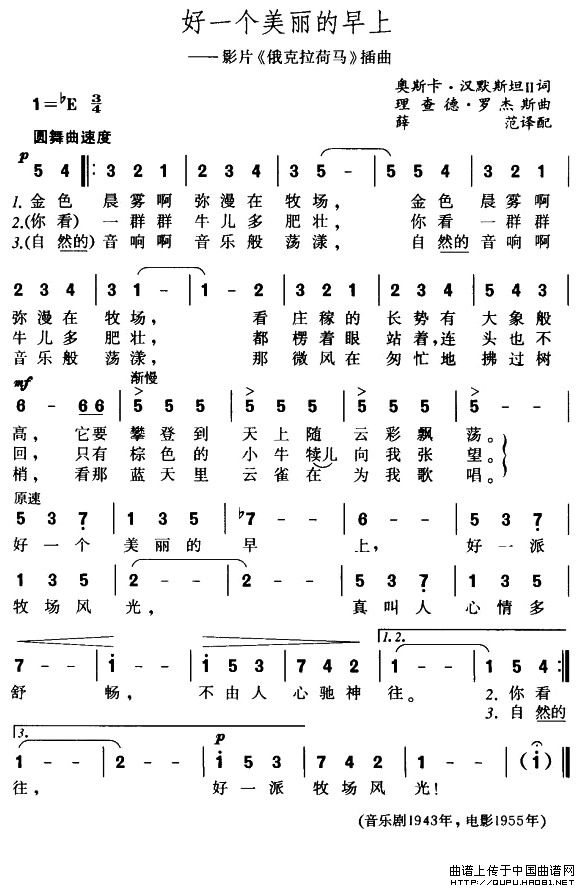 好一个美丽的早上
——影片《俄克拉荷马》插曲
奥斯卡·汉默斯坦II词
1=♭E 3/4
理查德·罗杰斯曲
薛 范译配
圆舞曲速度
p
5 4 ‖: 3 2 1 | 2 3 4 | 3 2 1 | 2 3 4 | 3 5 - | 5 5 4 | 3 2 1 |
1. 金色 晨雾啊 弥漫在 牧场, 金色 晨雾啊
2.(你看) 一群群 牛儿多 肥壮, 你看 一群群
3.(自然的) 音响啊 音乐般 荡漾, 自然的 音响啊
2 3 4 | 3 1 - | 1 - 2 | 3 2 1 | 2 3 4 | 5 4 3 |
弥漫在 牧场, 看 庄稼的 长势有 大象般
牛儿多 肥壮, 都 楞着眼 站着,连 头也不
音乐般 荡漾, 那 微风在 匆忙地 拂过树
mf 渐慢
6 - 6 6 | 5 5 5 | 5 5 5 | 5 5 5 | 5 - - |
高, 它要 攀登到 天上随 云彩飘 荡。
回, 只有 棕色的 小牛犊儿 向我张 望。
梢, 看那 蓝天里 云雀在 为我歌 唱。
原速
5 3 7 | 1 3 5 | ♭7 - - | 6 - - | 5 3 7 |
好一个 美丽的 早 上, 好一派
1 3 5 | 2 - - | 2 - - | 5 3 7 | 1 3 5 |
牧场风 光, 真叫人 心情多
1.2.
7 - - | i - - | i 5 3 | 7 4 2 | 1 - - | 1 5 4 :‖
舒 畅, 不由人 心驰神 往。 2. 你看
3. 自然的
3.
p
1 - - | 2 - - | i 5 3 | 7 4 2 | 1 - - | (i) ‖
往, 好一派 牧场风 光!
(音乐剧1943年,电影1955年)
曲谱上传于中国曲谱网
http://QUPU.HAO81.NET